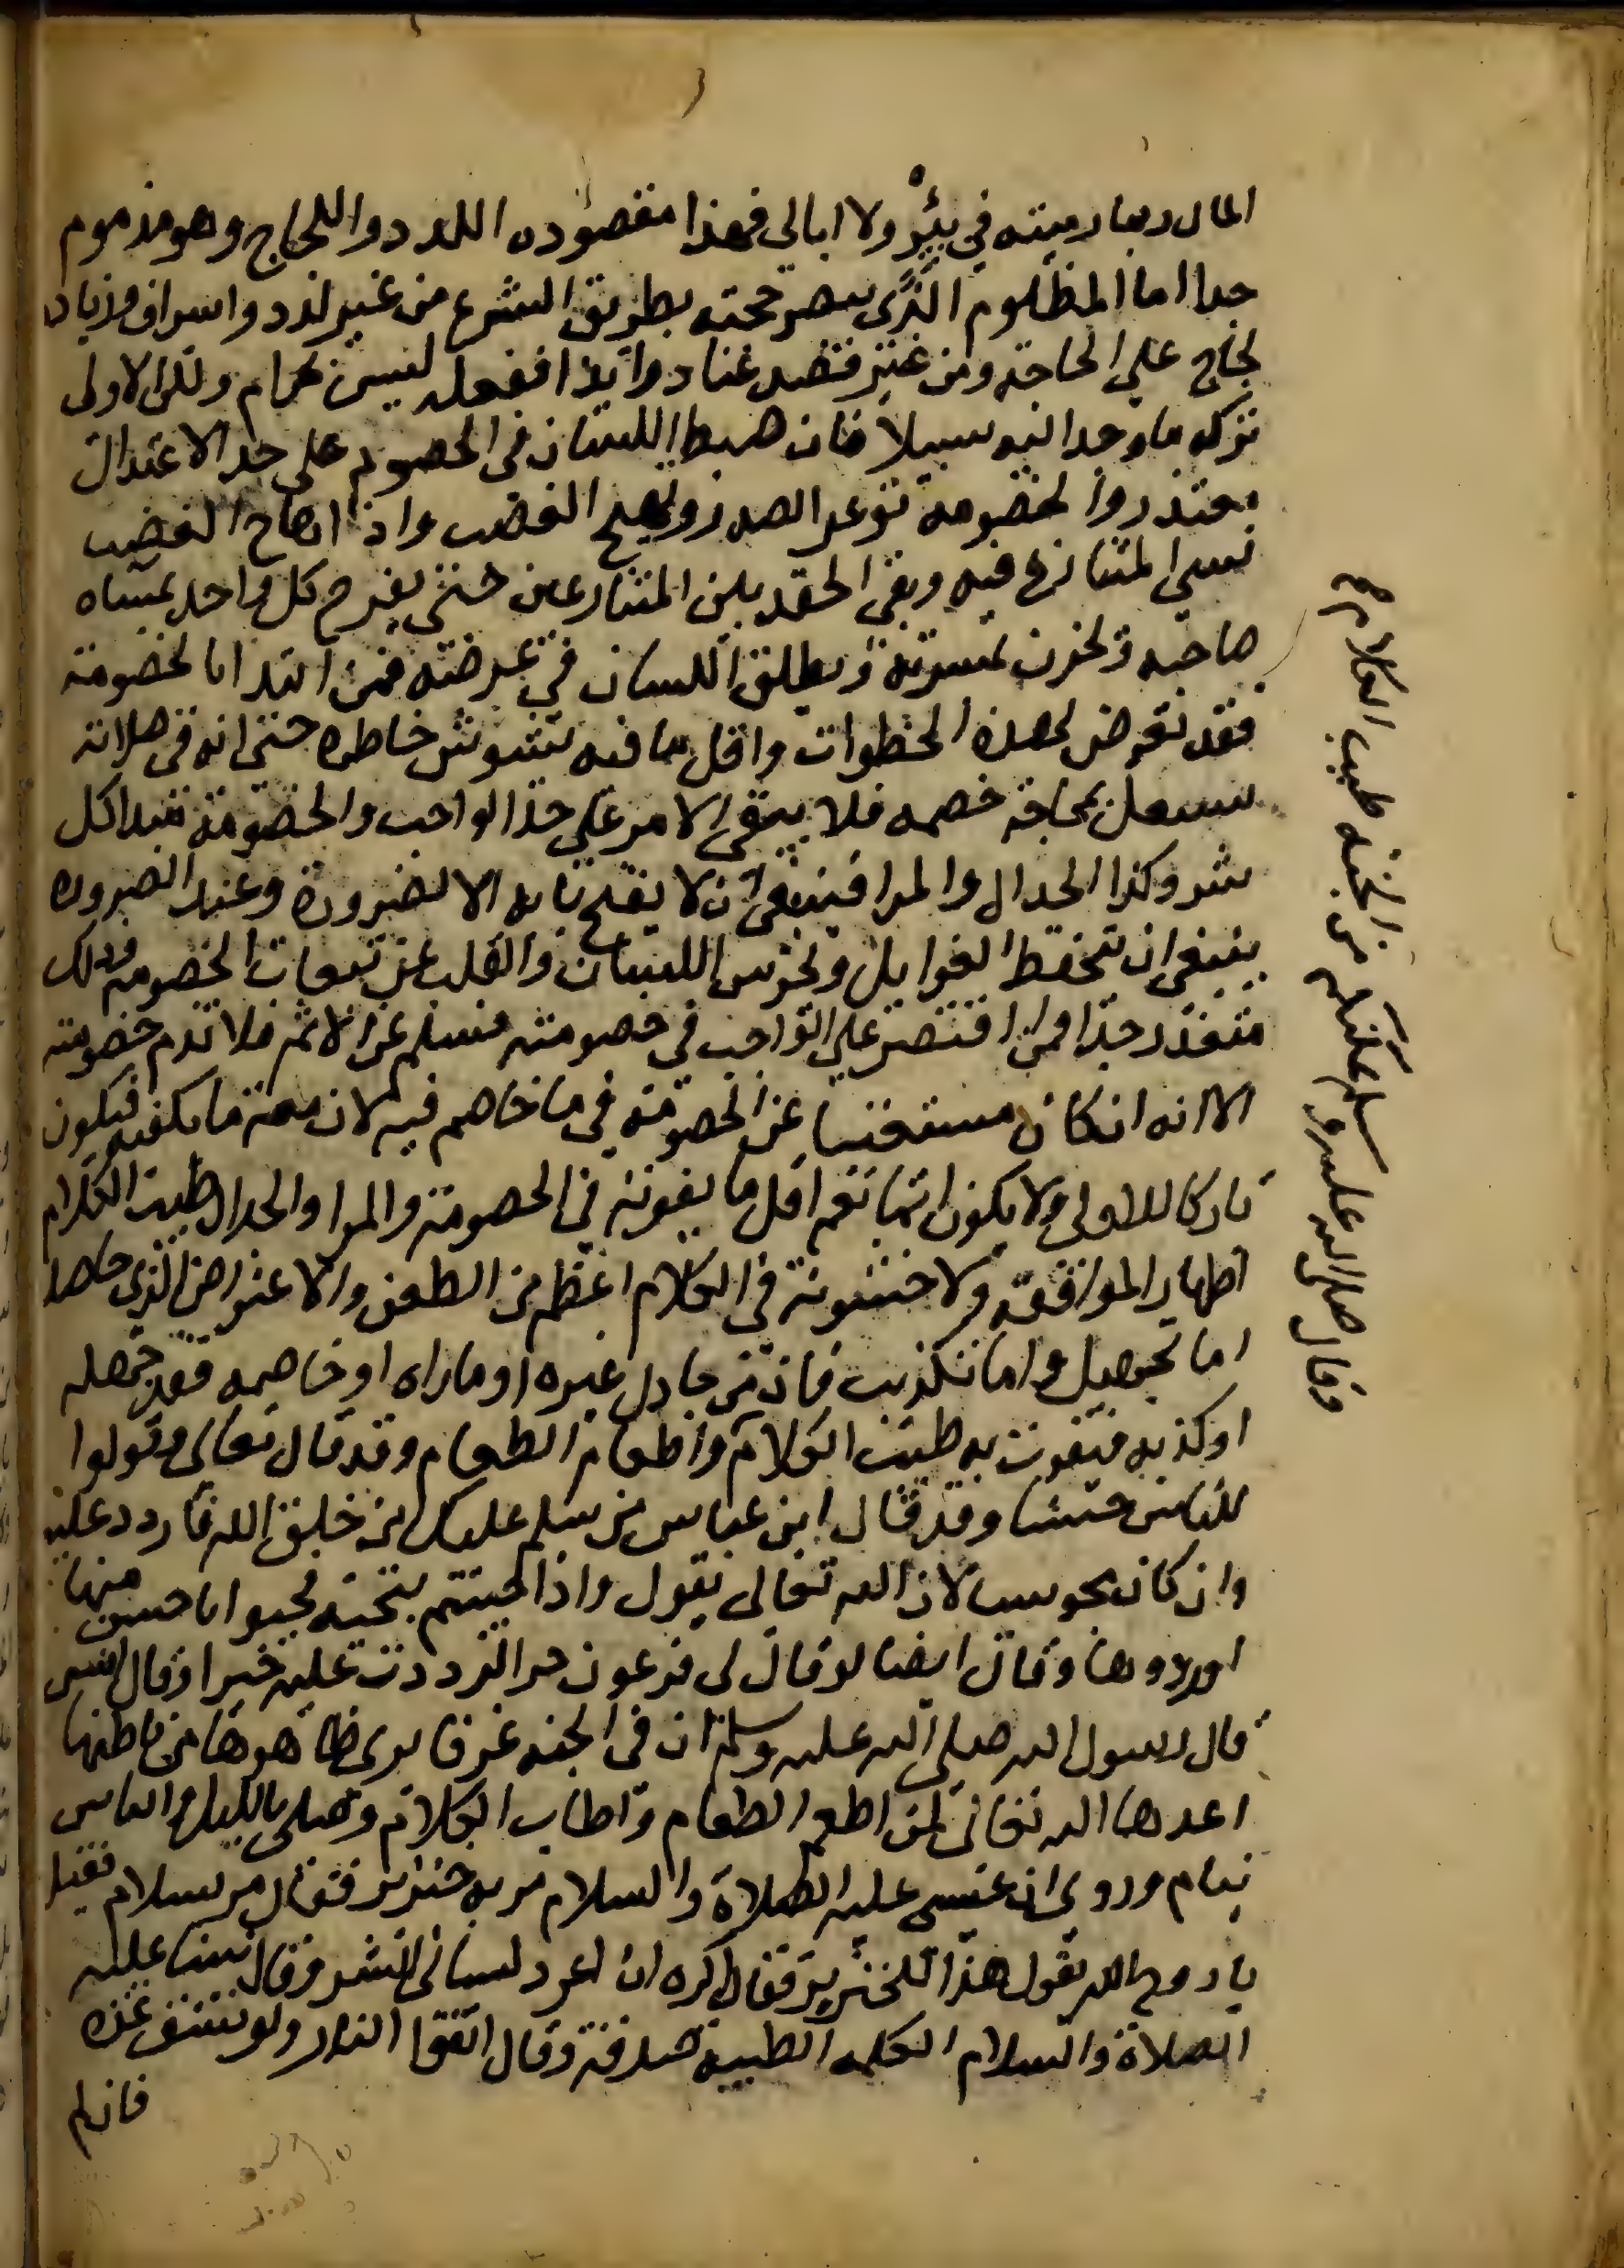 المال ربما رميته في بئر ولا ابالي فهذا مقصوده اللدد واللجاج وهو مذموم
جدا اما المظلوم الذي ينصر حجته بطريق الشرع من غير لدد واسراف وزياده
لجاج علي الحاجة ومن غير قصد عناد وايذا ففعله ليس بحرام ولكن الاولى
تركه ما وجد اليه سبيلا فان ضبط اللسان في الخصوم على حد الاعتدال
متعذر والخصومة توغر الصدر وتهيج الغضب واذا هاج الغضب
نسي المتنازع فيه وبقي الحقد بين المتنازعين حتى يفرح كل واحد بمساه
صاحبه ويحزن بمسرته ويطلق اللسان في عرضته فمن ابتدا بالخصومة
فقد تعرض لهذه الخطوات واقل ما فيه تشوش خاطره حتى انه في صلاته
يشتغل بمحاجة خصمه فلا يبقى الامر على حد الواجب والخصومة مبدا كل
شر وكذا الجدال والمرا فينبغي ان لا يفتح بابه الا لضرورة وعند الضروره
ينبغي ان يتحفظ الغوايل ويحرس اللسان والقلب عن تبعات الخصومه وذلك
متعذر جدا فمن اقتصر علي الواجب في خصومته فسلم عن الاثم فلا تذم خصومته
الا انه ان كان مستغنيا عن الخصومة في ما خاصم فيه لان معه ما يكفيه فيكون
تاركا للاولى ولا يكون اثما نعم اقل ما يفوته في الخصومة والمرا والجدال طيب الكلام
اظهار الموافقة ولا خشونة في الكلام اعظم من الطعن والاعتراض الذي حاصله
اما تجهيل واما تكذيب فان من جادل غيره او ماراه او خاصمه فقد جهله
او كذبه فيفوت به طيب الكلام واطعام الطعام وقد قال تعالى وقولوا
للناس حسنا وقد قال ابن عباس من سلم عليك من خلق الله فاردد عليه
وان كان مجوسيا لان الله تعالى يقول واذا حييتم بتحية فحيوا باحسن منها
او ردوها وقال ايضا لو قال لي فرعون خيرا لرددت عليه خيرا وقال انس
قال رسول الله صلى الله عليه وسلم ان في الجنه غرفا يرى ظاهرها من باطنها
اعدها الله تعالى لمن اطعم الطعام واطاب الكلام وصلى بالليل والناس
نيام وروي ان عيسى عليه الصلاة والسلام مر به خنزير فقال مر بسلام فقيل
يا روح الله تقول هذا للخنزير فقال اكره ان اعود لساني الشر وقال نبينا عليه
الصلاة والسلام الكلمه الطيبة صدقة وقال اتقوا النار ولو بشق تمره
فان لم
وقال صلى الله عليه وسلم يمكنكم من الجنه طيب الكلام